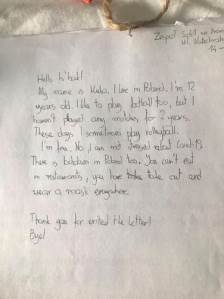 Zespół Szkół
ul.
Hello
My name is Kuba. I live in Poland. I'm 12
years old. I like to play football too, but I
haven't played any matches for 2 years.
These days I sometimes play volleyball.
I'm fine. No, I am not stressed about Covid-19.
There is lockdown in Poland too. You can't eat
in restaurants, you have take out and
wear a mask everywhere.
Thank you for the letter!
Bye!